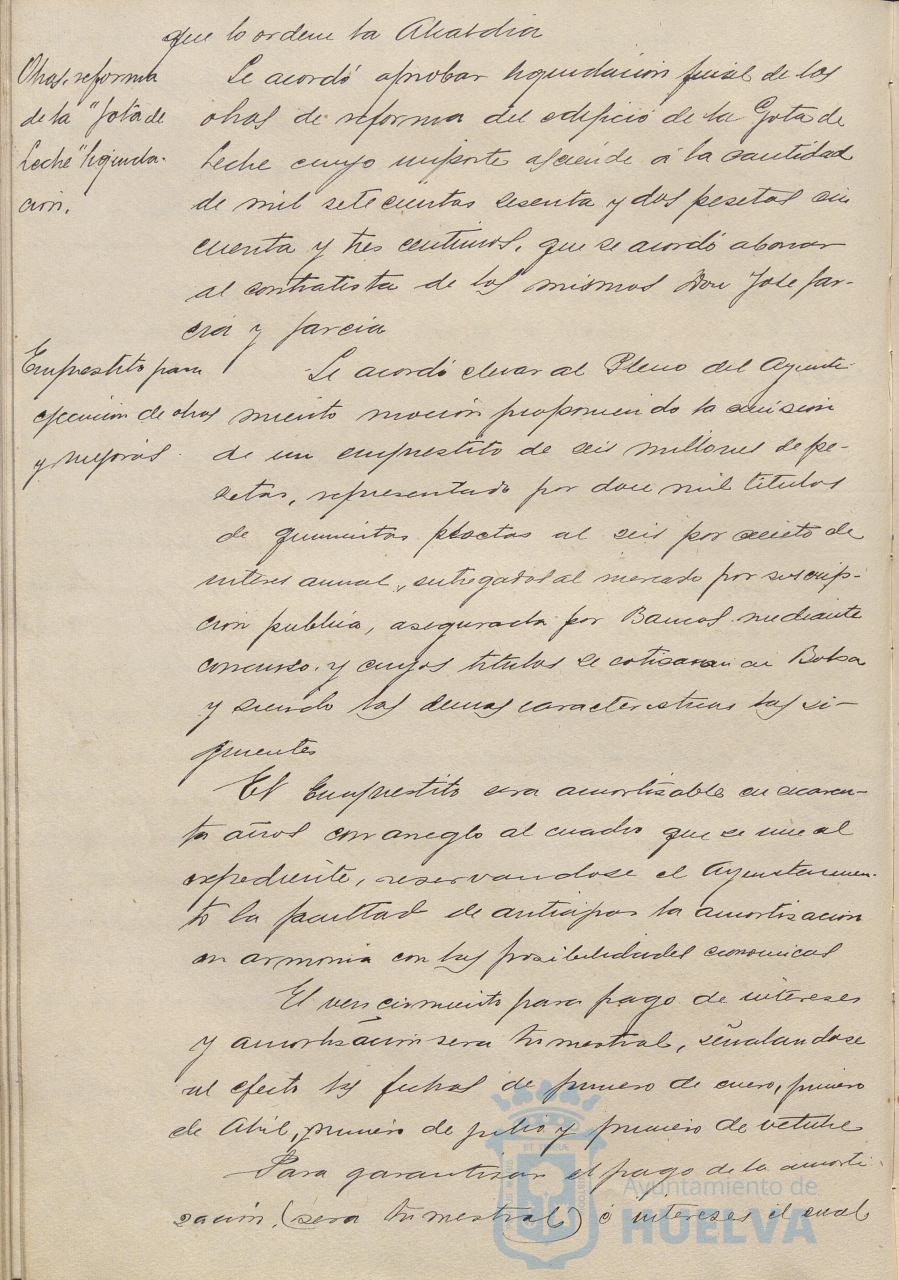 que lo ordene la Alcaldia
Obras reforma
de la "Gota de
Leche" liquida-
cion.
Se acordó aprobar liquidacion final de las
obras de reforma del edificio de la Gota de
Leche cuyo importe asciende á la cantidad
de mil setecientas sesenta y dos pesetas cin
cuenta y tres centimos, que se acordó abonar
al contratista de las mismas Don Jose Gar-
cia y Garcia
Emprestito para
ejecucion de obras
y mejoras.
Se acordó elevar al Pleno del Ayunta
miento mocion proponiendo la emision
de un emprestito de seis millones de pe-
setas, representado por doce mil titulos
de quinientas pesetas al seis por ciento de
interes anual, entregados al mercado por suscrip-
cion publica, asegurada por Bancos mediante
concurso y cuyos titulos se cotisaran en Bolsa
y siendo las demas caracteristicas las si-
guientes
El Emprestito sera amortisable en cuaren-
ta años con arreglo al cuadro que se une al
expediente, reservandose el Ayuntamien-
to la facultad de anticipar la amortisacion
en armonia con las posibilidades economicas
El vencimiento para pago de intereses
y amortisacion sera trimestral, señalandose
al efecto las fechas de primero de enero, primero
de Abril, primero de julio y primero de octubre
Para garantisar el pago de la amorti-
zacion, (sera trimestral) é intereses el cual
Ayuntamiento de
HUELVA